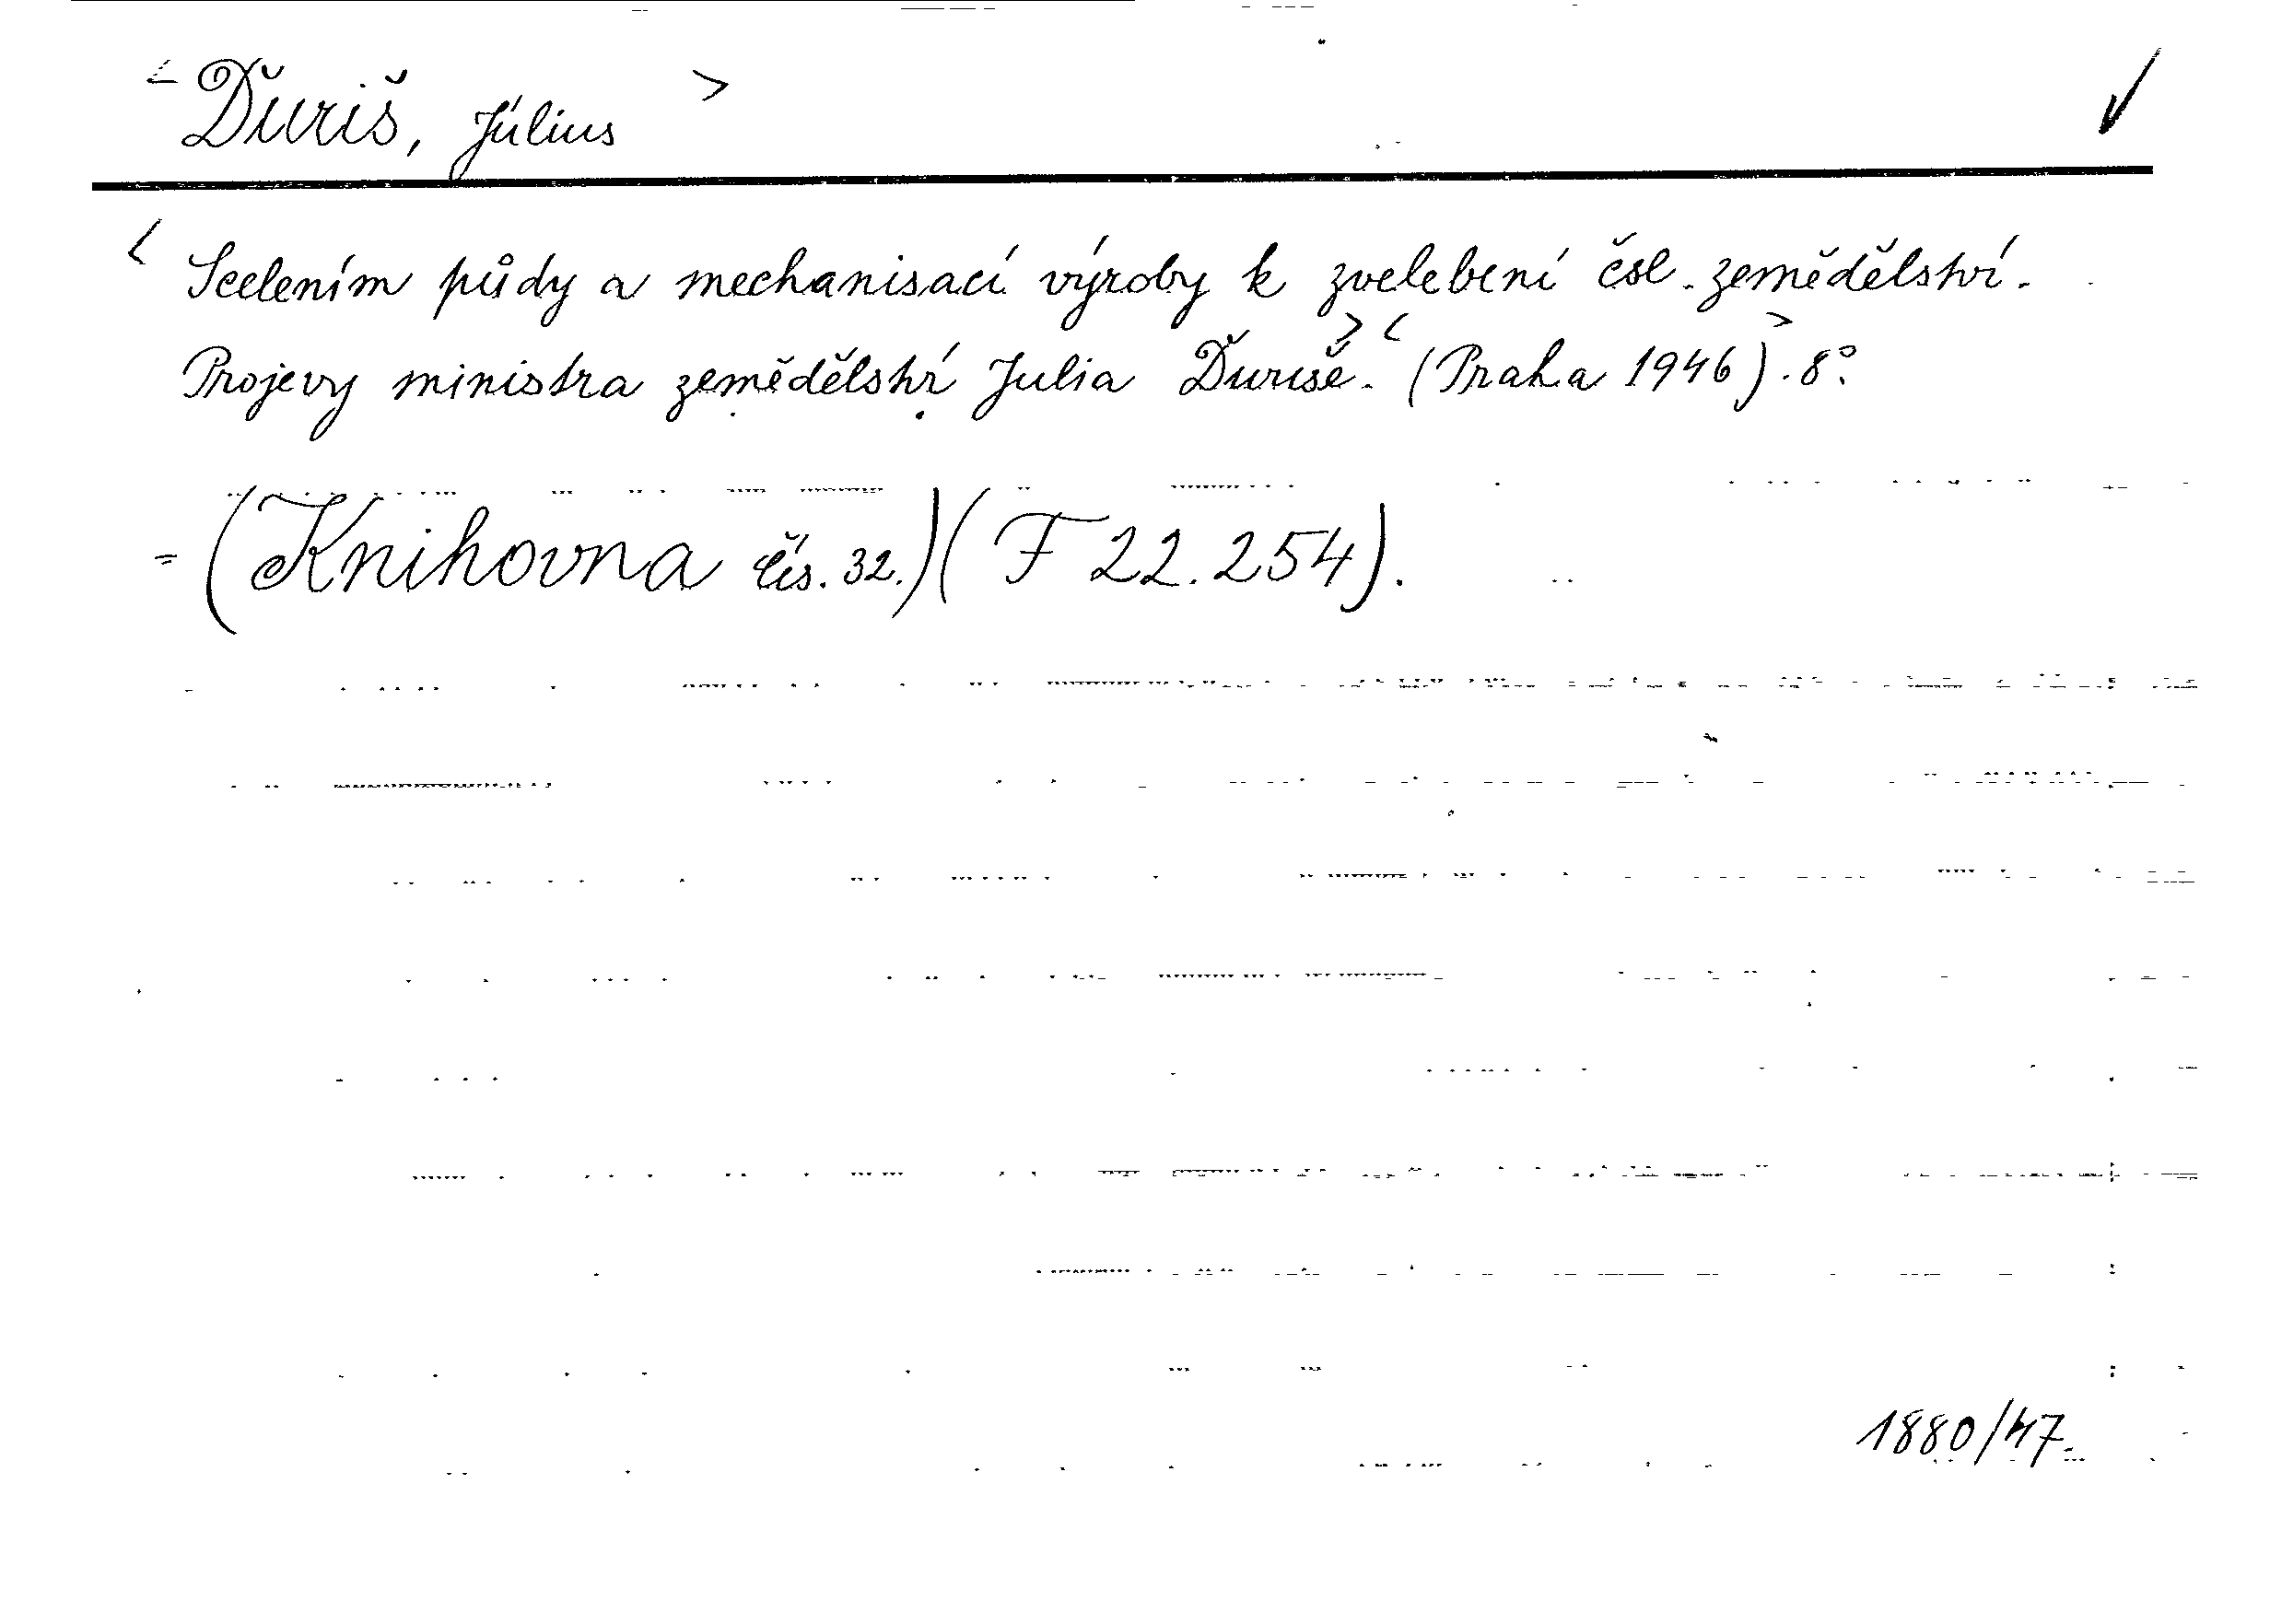 < Ďuriš, Július >
< Scelením půdy a mechanisací výroby k zvelebení čsl. zemědělství.
Projevy ministra zemědělství Julia Ďuriše.> <(Praha 1946)>. 8°.
= (Knihovna čís. 32.) (F 22.254).
1880/47.